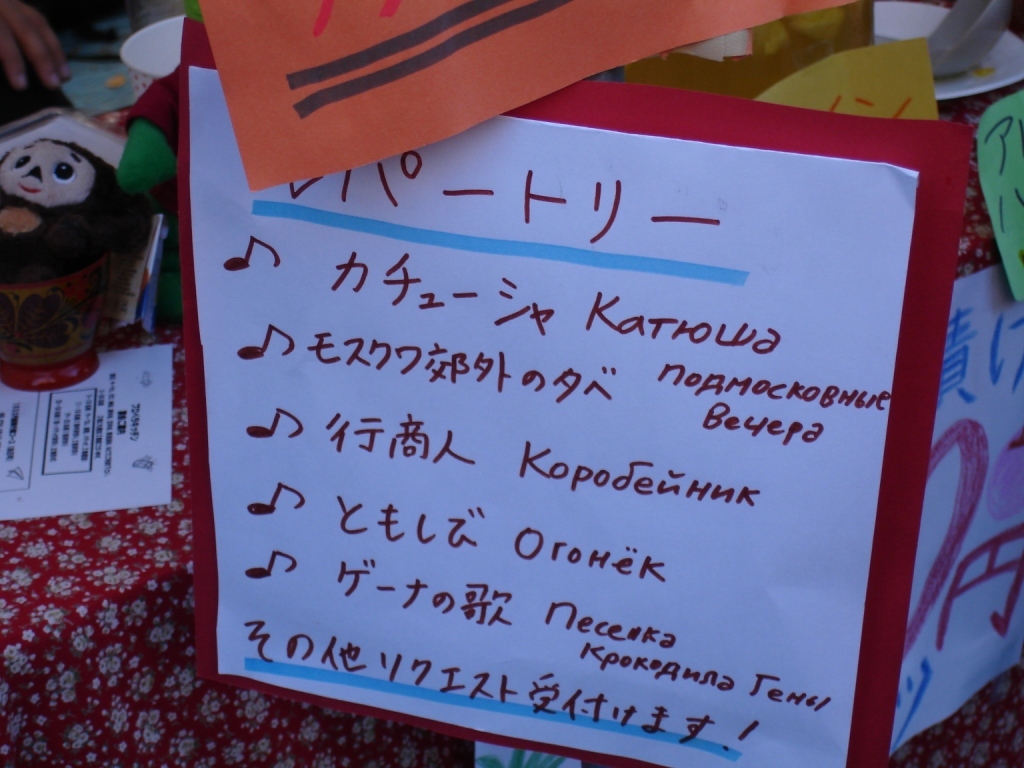 レパートリー
♪ カチューシャ Катюша
♪ モスクワ郊外の夕べ Подмосковные
Вечера
♪ 行商人 Коробейник
♪ ともしび Огонёк
♪ ゲーナの歌 Песенка
Крокодила Гены
その他リクエスト受付けます!
漬け
円